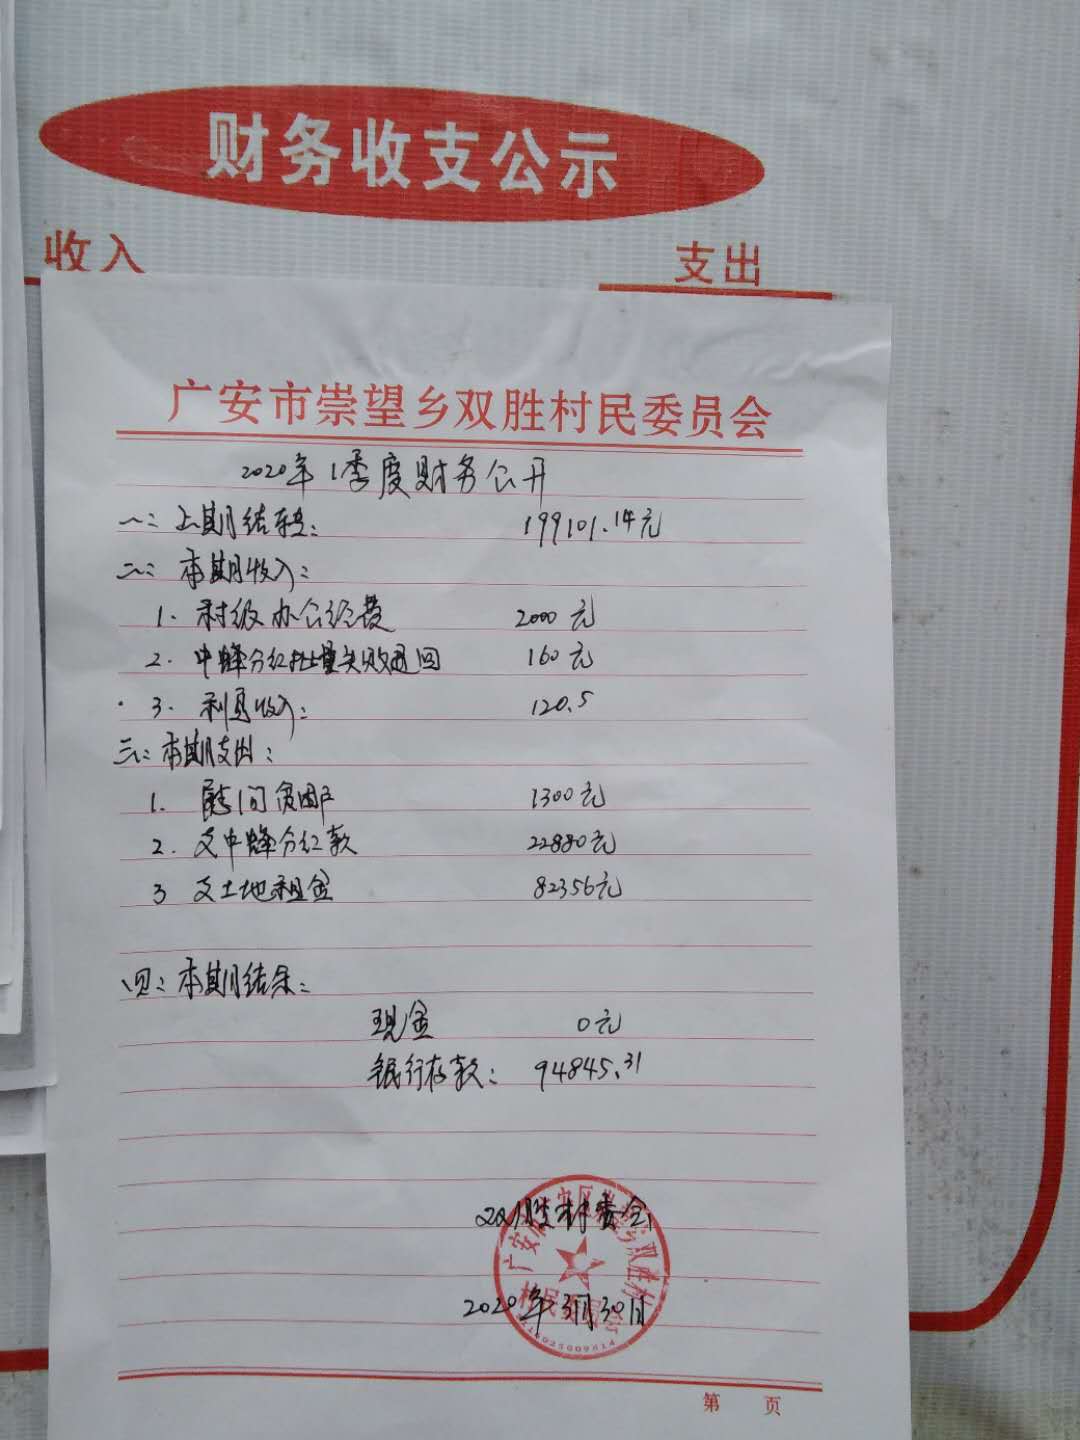 财务收支公示
收入
支出
广安市崇望乡双胜村民委员会
2020年1季度财务公开
一: 上期结转: 199101.14元
二: 本期收入:
1. 村级办公经费 2000元
2. 中蜂分红批量失败退回 160元
3. 利息收入: 120.5
三: 本期支出:
1. 慰问贫困户 1300元
2. 支中蜂分红款 22880元
3 支土地租金 82356元
四: 本期结余:
现金 0元
银行存款: 94845.31
双胜村委会
2020年3月30日
第 页